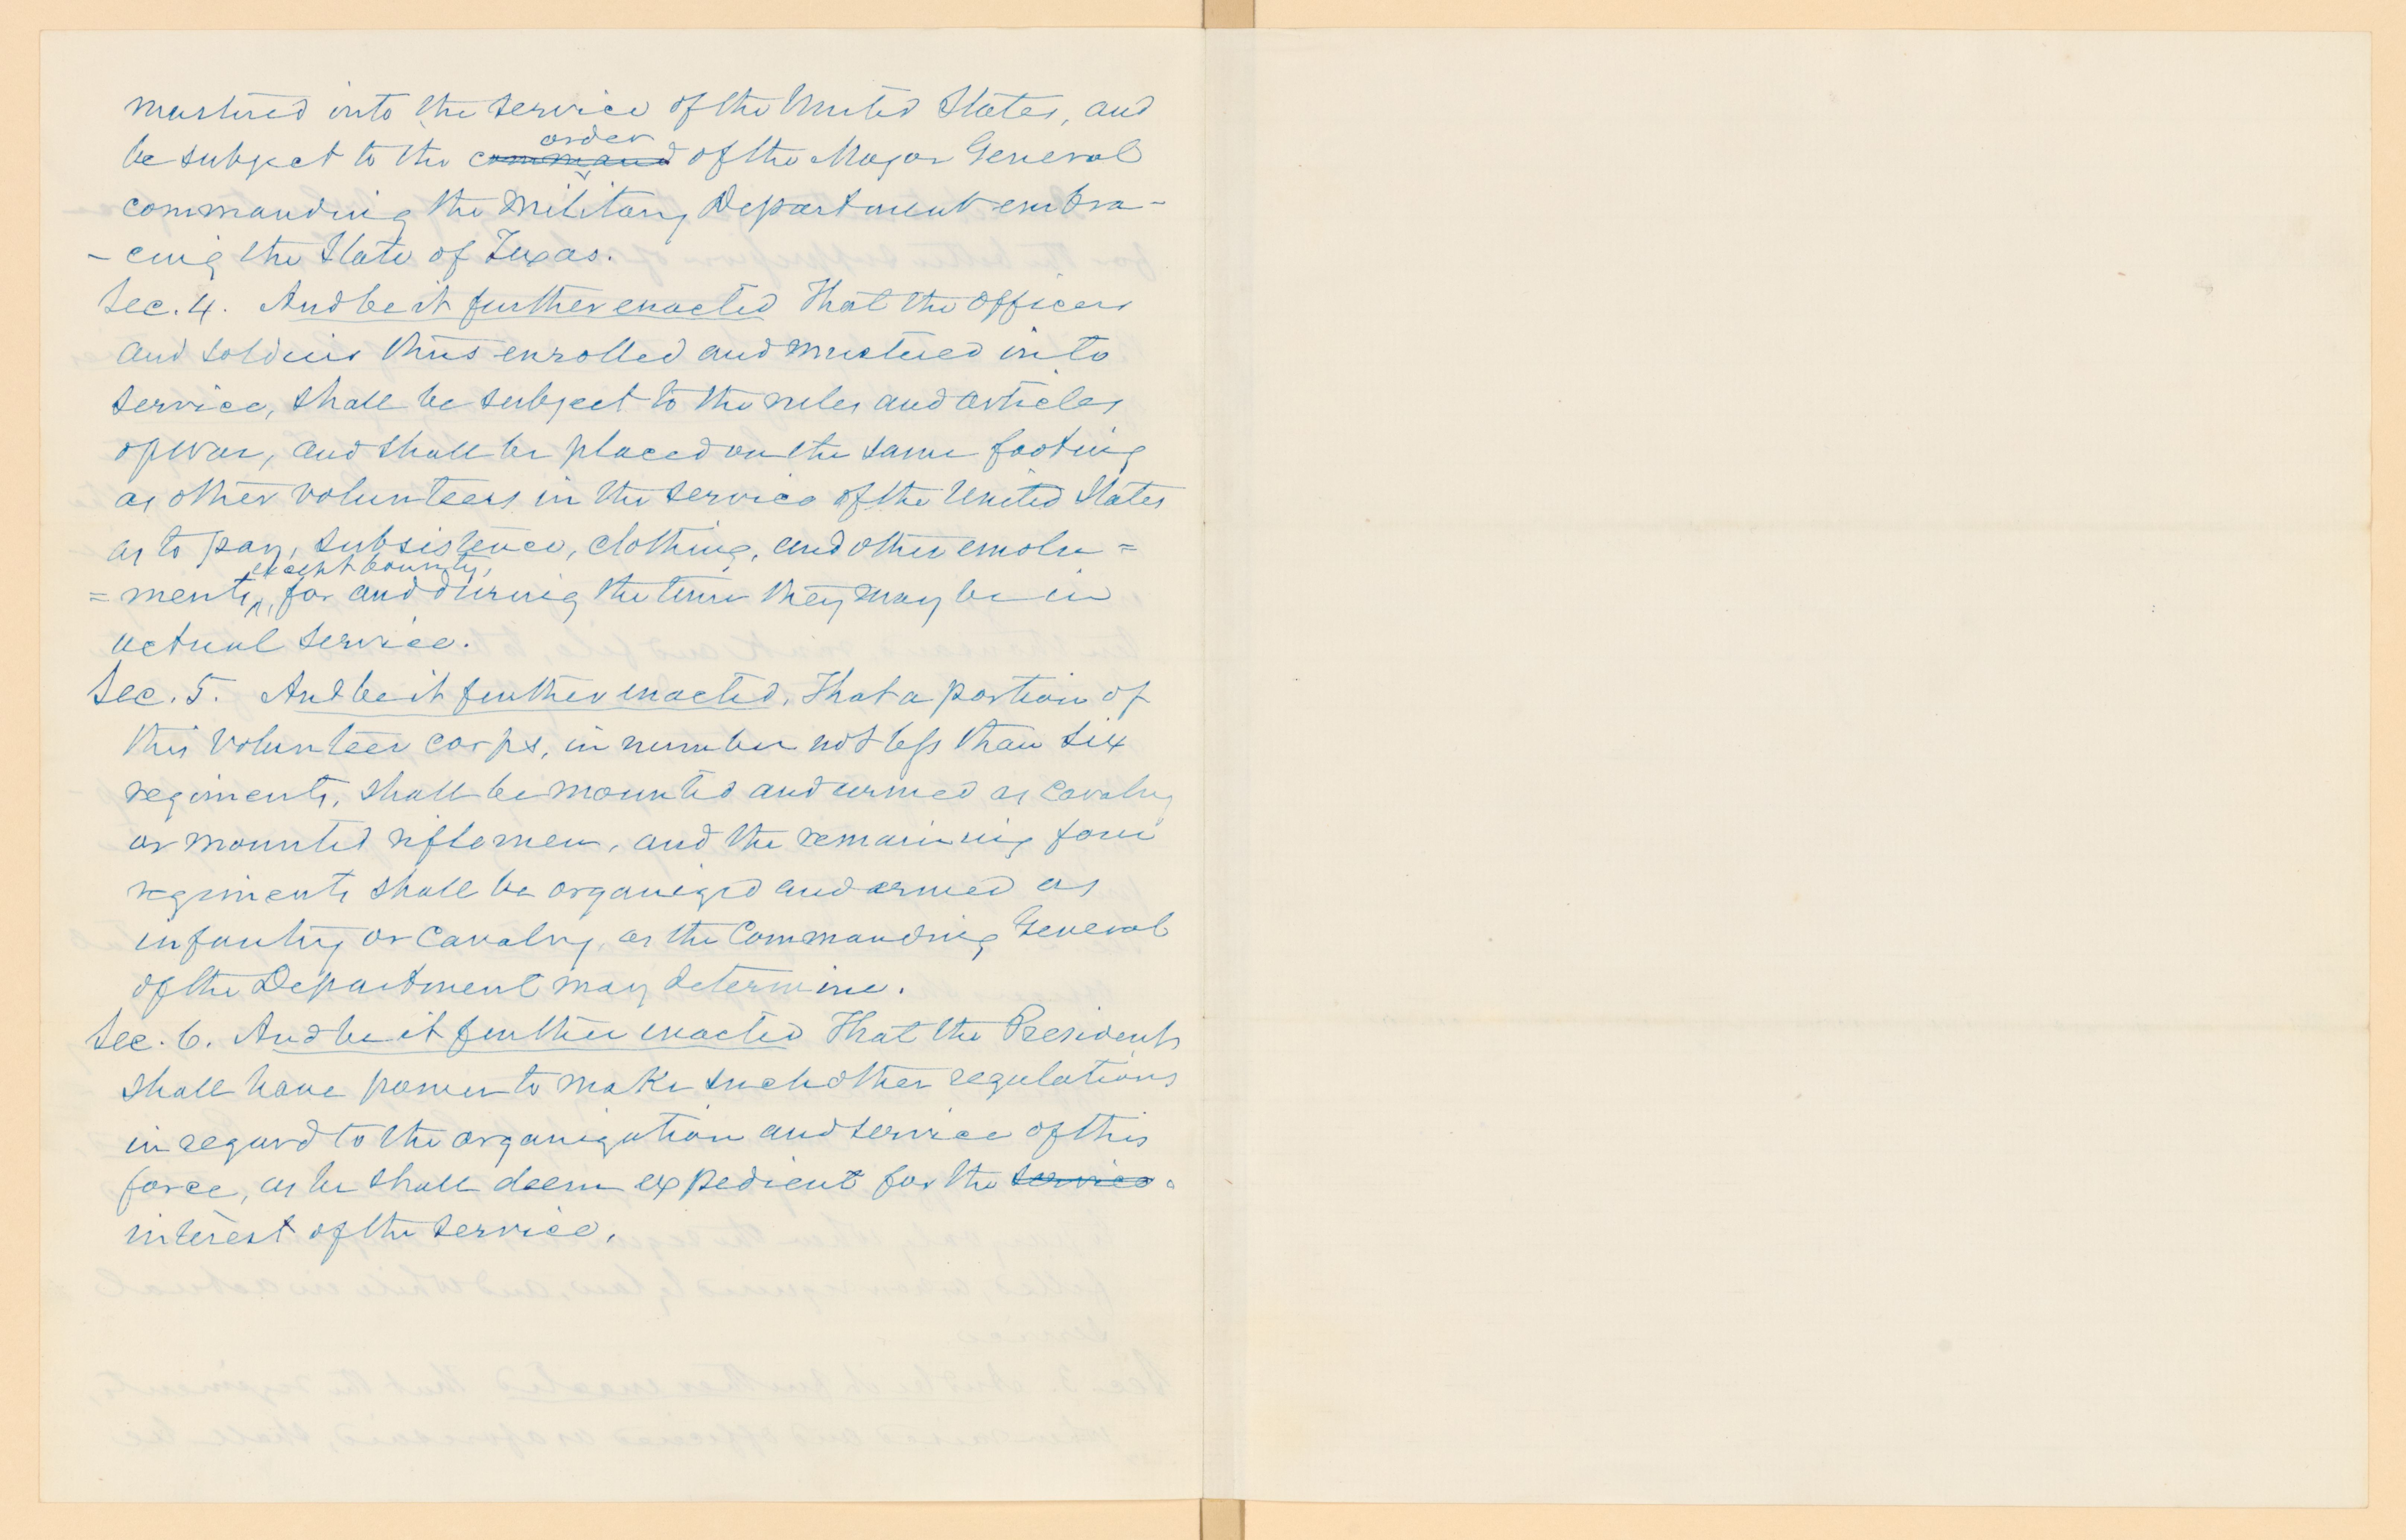 mustered into the service of the United States, and
order
be subject to the command of the Major General
commanding the Military Department embra-
-cing the State of Texas.
Sec. 4. And be it further enacted That the officers
and soldiers thus enrolled and mustered into
service, shall be subject to the rules and articles
of war, and shall be placed on the same footing
as other volunteers in the service of the United States
as to pay, subsistence, clothing, and other emolu=
except bounty,
=ments, for and during the time they may be in
actual service.
Sec. 5. And be it further enacted, That a portion of
this volunteer corps, in number not less than six
regiments, shall be mounted and armed as cavalry
or mounted riflemen, and the remaining four
regiments shall be organized and armed as
infantry or cavalry, as the Commanding General
of the Department may determine.
Sec. 6. And be it further enacted That the President
shall have power to make such other regulations
in regard to the organization and service of this
force, as he shall deem expedient for the service.
interest of the service.